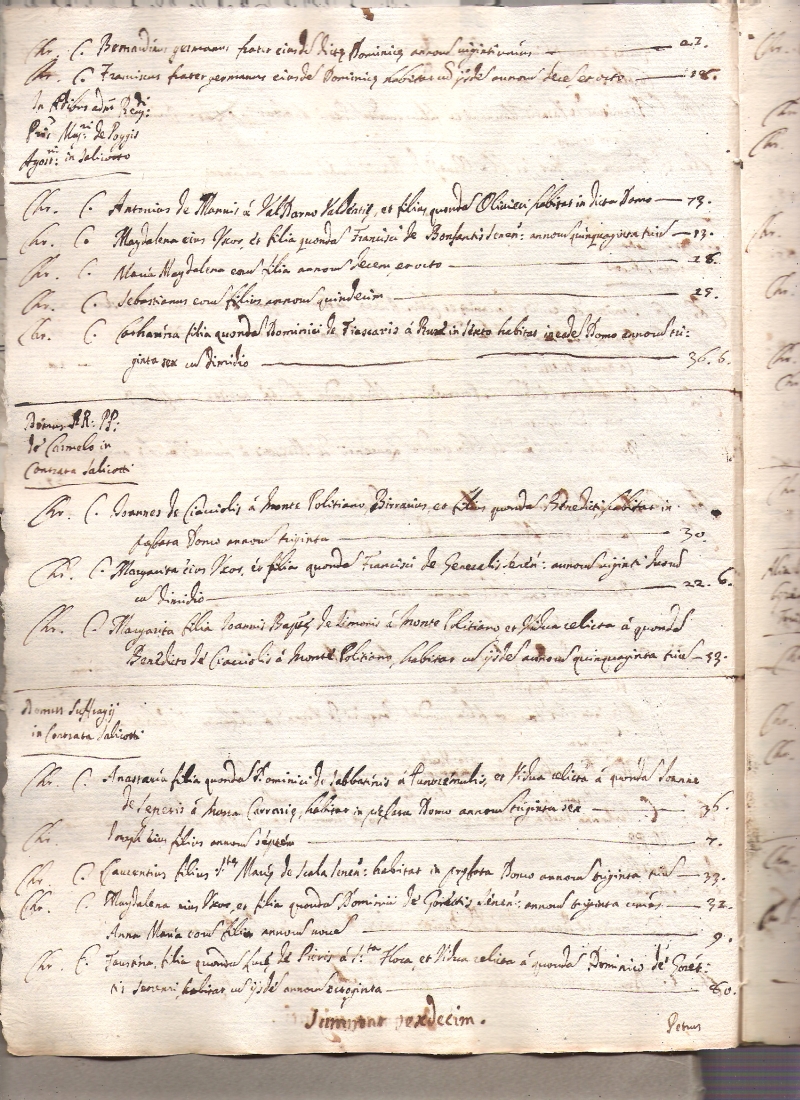 Chr. C. Bernardinus germanus frater eiusdẽ dictę Dominicę annorũ viginti unius — 21.
Chr. C. Franciscus frater germanus eiusdẽ Dominicę habitat cũ ijsdẽ annorũ decẽ, et octo — 18.
In Ædibus adm̃ Reṽ:di
Pris Mag:ri de Poggis
Agost:ni in Salicotto
Chr. C. Antonius de Nannis à Val Darno, et filius quondã Olivieri habitat in dicta Domo — 73.
Chr. C. Magdalena eius Uxor, et filia quondã Francisci de Bonfantis Senen̄: annorũ quinquaginta triũ — 53.
Chr. C. Maria Magdalena eorũ filia annorũ decem et octo — 18.
Chr. C. Sebastianus eorũ filius annorũ quindecim — 15.
Chr. C. Catharina filia quondã Dominici de à in habitat in eadẽ Domo annorũ tri-
ginta sex cũ dimidio — 36. 6.
Domus RR: PP:
de Carmelo in
Contrata Salicotti
Chr. C. Ioannes de Ciacciolis à Monte Politiano, et filius quondã Benedicti, habitat in
pręfata Domo annorũ triginta — 30.
Chr. C. Margarita eius Uxor, et filia quondã Francisci de Generalis Senen̄: annorũ viginti duorũ
cũ dimidio — 22. 6.
Chr. C. Margarita filia Ioannis Baptę de Simonis à Monte Politiano et Vidua relicta à quondã
Benedicto de Ciacciolis à Monte Politiano, habitat cũ ijsdẽ annorũ quinquaginta triũ — 53.
Domus Suffragij
in Contrata Salicotti
Chr. C. Anastasia filia quondã Dominici de Sabbatinis à, et Vidua relicta à quondã Ioanne
de Seneris à Massa Carrarię, habitat in pręfata Domo annorũ triginta sex — 36.
Chr. Ioseph eius filius annorũ septem — 7.
Chr. C. Laurentius filius S.tę Marię de Scala Senen̄: habitat in pręfata Domo annorũ triginta triũ — 33.
Chr. C. Magdalena eius Uxor, et filia quondã Dominici de Gorettis Senen̄: annorũ triginta — 32.
Anna Maria eorũ filia annorũ novẽ — 9.
Chr. C. Faustina filia quondã Lucę de Pieris à S.ta Flora, et Vidua relicta à quondã Dominico de Goret:
tis Senensi, habitat cũ ijsdẽ annorũ octoginta — 80.
Summant sexdecim.
Petrus